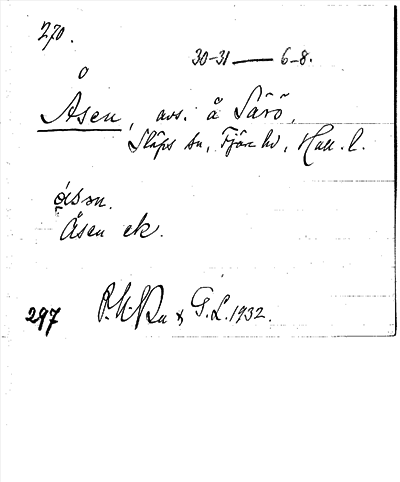 270.
30-31 — 6-8.
Åsen, avs. å Särö,
Släps sn, Fjäre hd, Hall. l.
ås
Åsen ek.
297 & G. L. 1932.